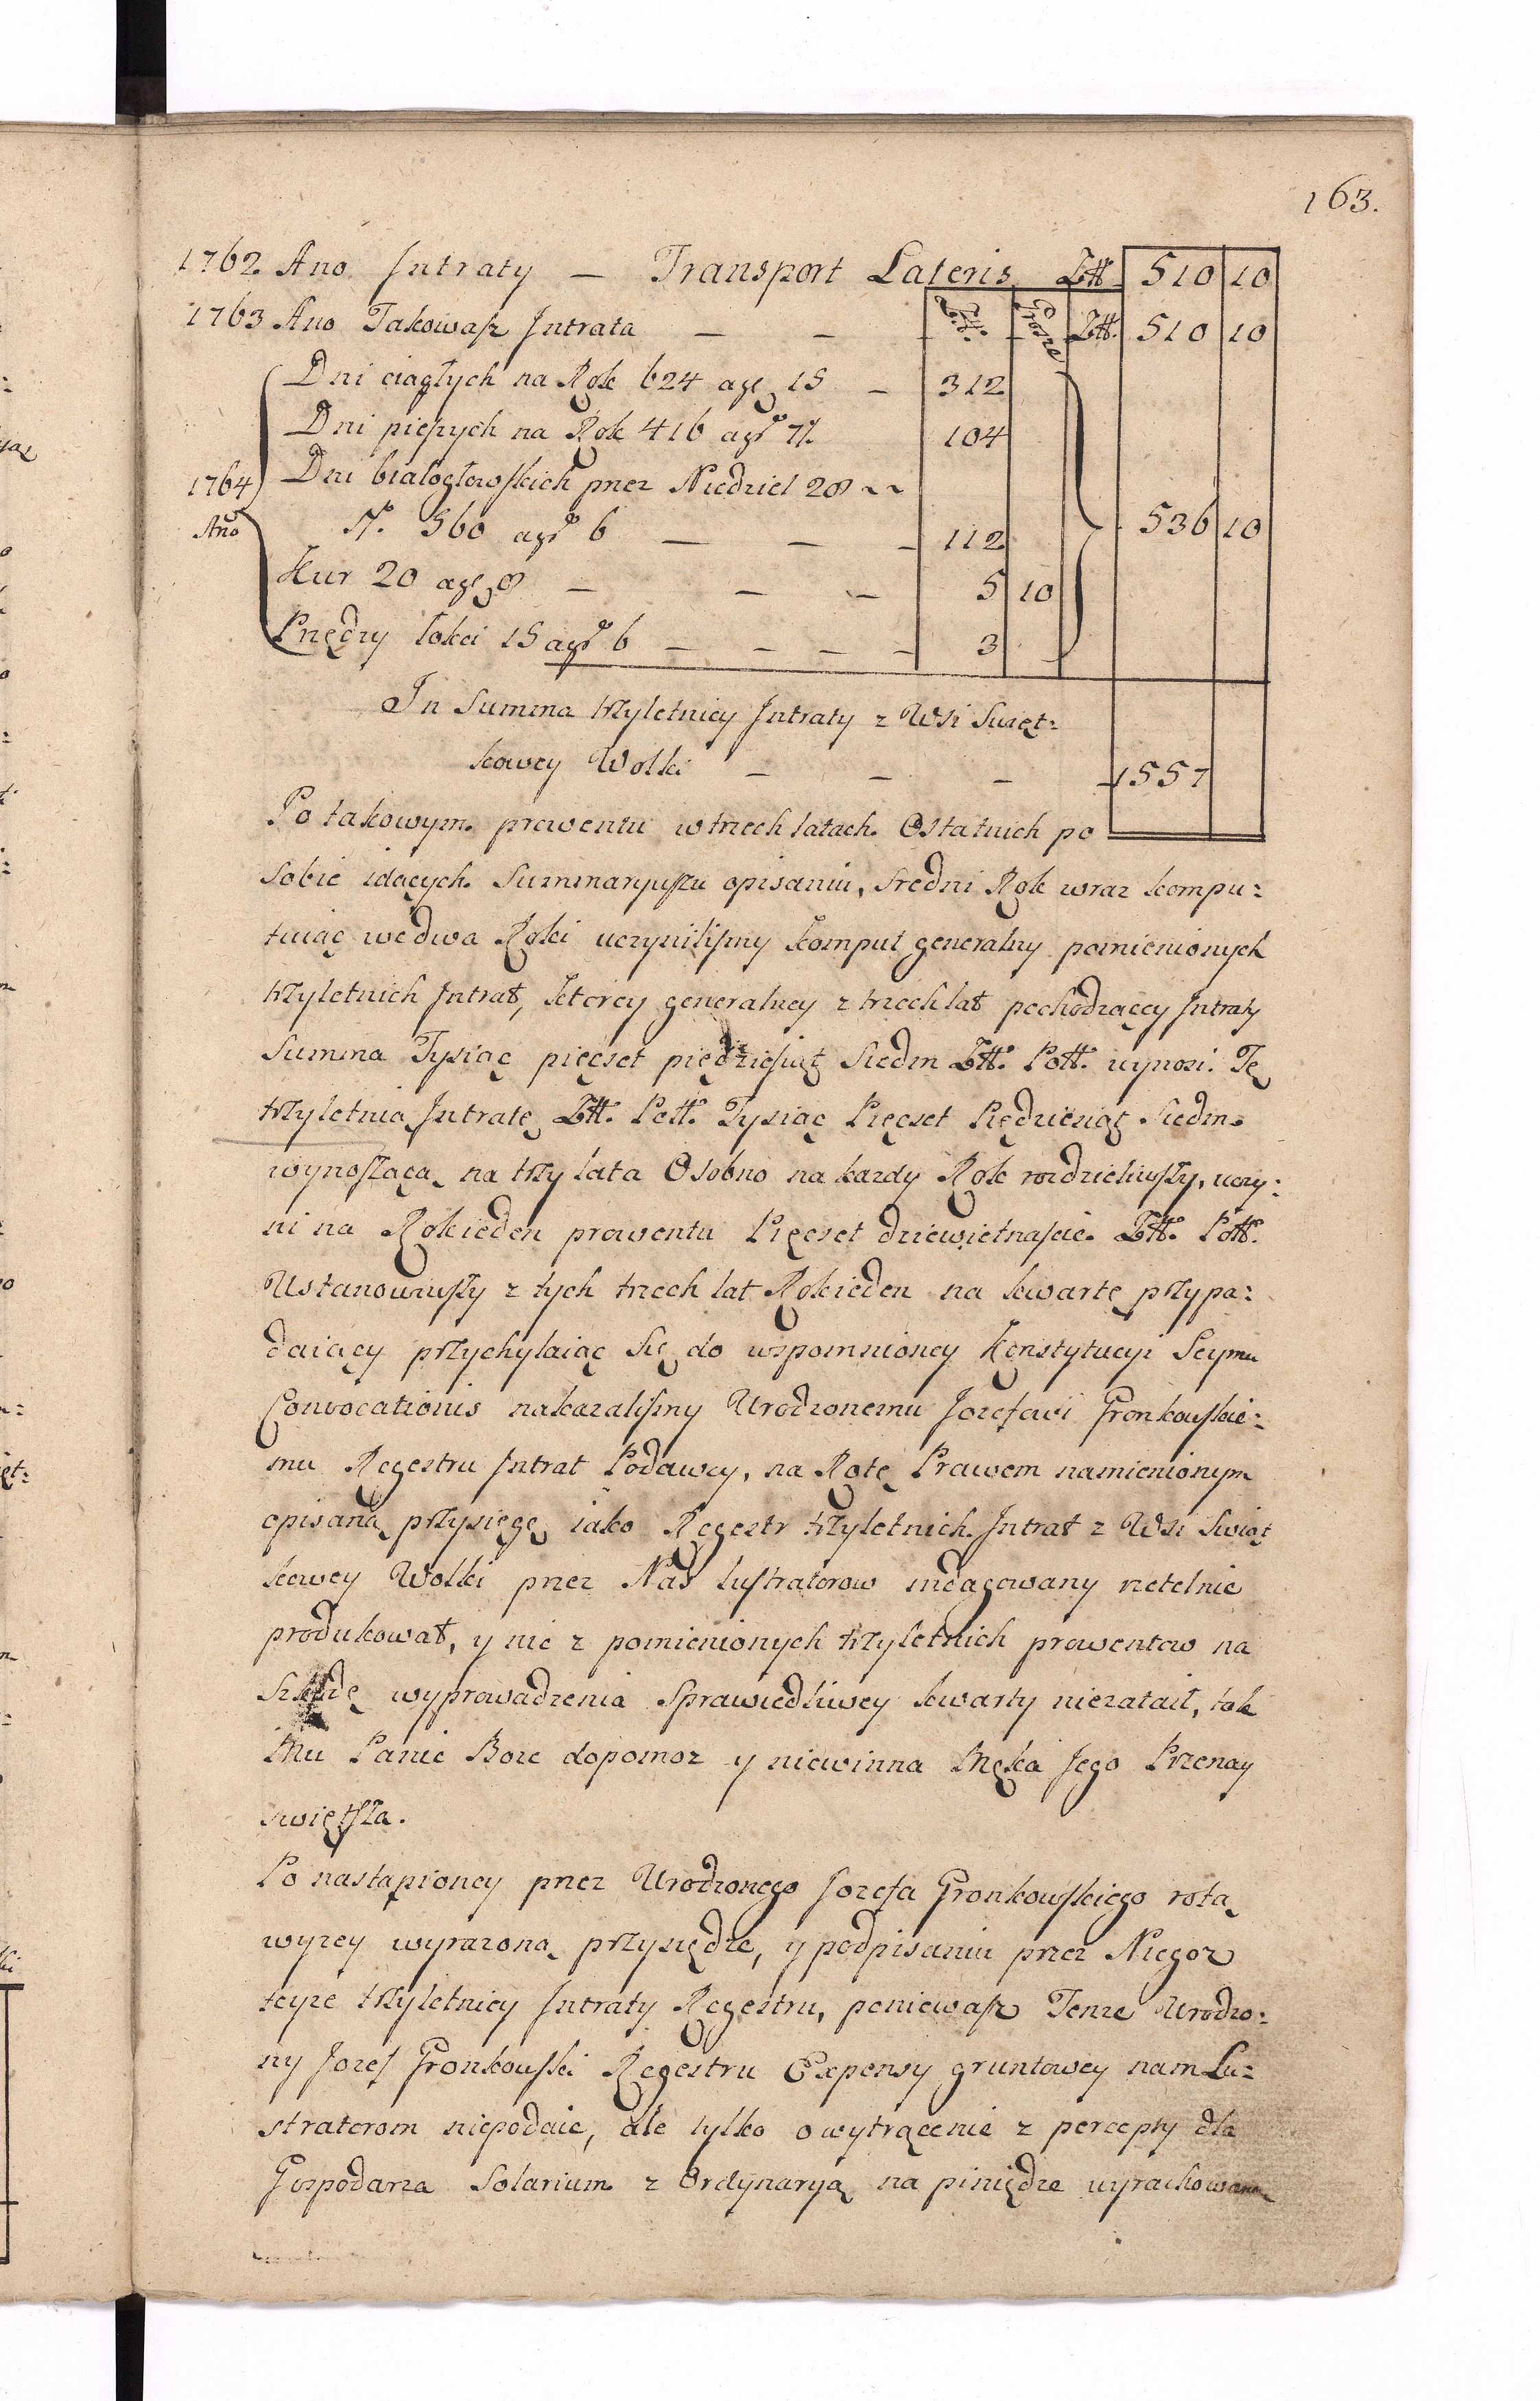 163.
1762. Ano Intraty — Transport Lateris Ztt. 510 10
1763 Ano Takowasz Intrata — — Ztt. Grosze Ztt. 510 10
Dni ciągłych na Rok 624 agr 15 — 312
Dni pieszych na Rok 416 agr 7½ 104
Dni białogłowskich przez Niedziel 28
1764 Ano No. 560 agr 6 — — — 112 536 10
Kur 20 agr 8 — — — 5 10
Przędzy łokci 15 agr 6 — — — — 3
In Summa trzyletniey Intraty z Wsi Swięt:
kowey Wolki — — — 1557
Po takowym prowentu w trzech latach Ostatnich po
sobie idących Summaryuszu opisaniu, Sredni Rok wraz kompu:
tuiąc wedwa Roki uczynilismy komput generalny pomienionych
trzyletnich Intrat, ktorey generalney z trzech lat pochodzącey Intraty
Summa Tysiąc pięcset piędziesiąt Siedm Ztt. Poll. wynosi. Tę
trzyletnią Intratę Ztt. Poll. Tysiąc Pięcset Piędziesiąt Siedm
wynoszącą na trzy lata Osobno na kazdy Rok rozdzieliwszy, uczy:
ni na Rokieden prowentu Pięcset dziewiętnascie Ztt. Poll.
Ustanowiwszy z tych trzech lat Rokieden na kwartę przypa:
daiący przychylaiąc Się do wspomnioney Konstytucyi Seymu
Convocationis nakazalismy Urodzonemu Jozefowi Gronkowskie:
mu Regestru Intrat Podawcy, na Rotę Prawem namienionym
opisaną przysięgę iako Regestr trzyletnich Intrat z Wsi Swiąt
kowey Wolki przez Nas lustratorow indagowany rzetelnie
produkował, y nic z pomienionych trzyletnich prowentow na
Szkodę wyprowadzenia Sprawiedliwey kwarty niezataił, tak
Mu Panie Boze dopomoz y niewinna Męka Jego Przenay
swiętsza.
Po nastąpioney przez Urodzonego Jozefa Gronkowskiego rotą
wyzey wyrazoną przysiędze, y podpisaniu przez Niegoz
teyze trzyletniey Intraty Regestru, poniewasz Tenze Urodzo:
ny Jozef Gronkowski Regestru Expensy gruntowey nam Lu:
stratorom niepodaie, ale tylko o wytrącenie z percepty dla
Gospodarza Solarium z Ordynaryą na piniędze wyrachowaną